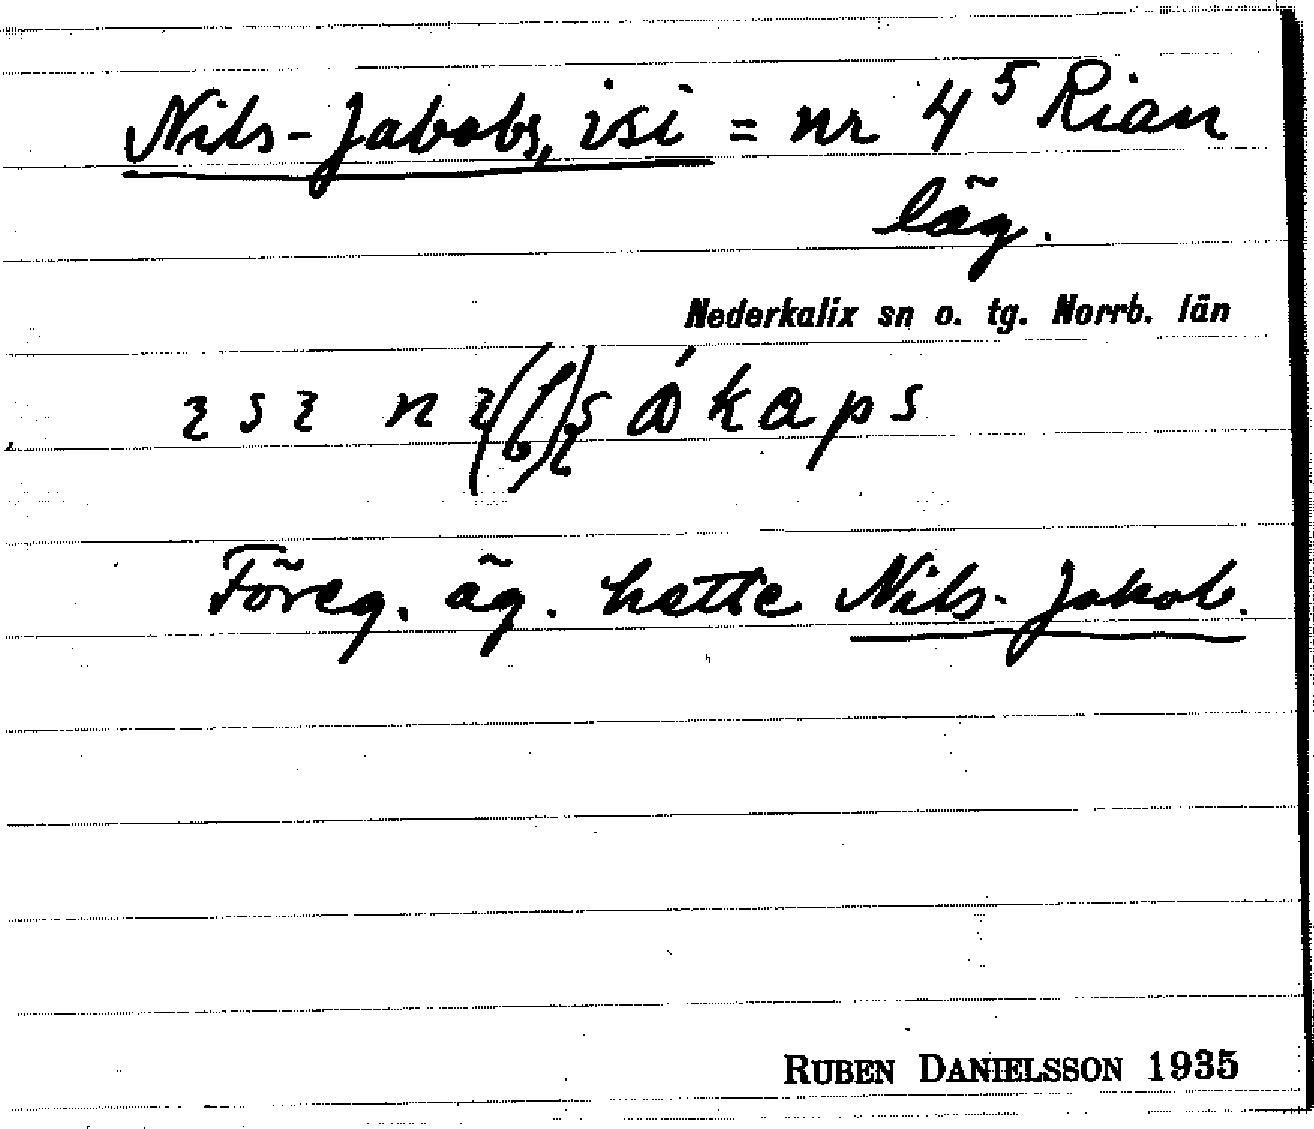 Nils-Jakobs, isi = nr 4⁵ Rian
läg.
Nederkalix sn o. tg. Norrb. län
Föreg. äg. hette Nils-Jakob.
RUBEN DANIELSSON 1935